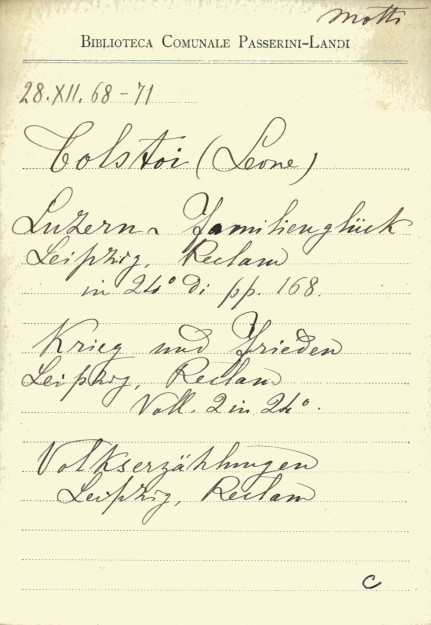 Motti
BIBLIOTECA COMUNALE PASSERINI-LANDI
28.XII.68-71
Tolstoi (Leone)
Luzern - Familienglück
Leipzig, Reclam
in 24° di pp. 168.
Krieg und Frieden
Leipzig, Reclam
Voll. 2 in 24°.
Volkserzählungen
Leipzig, Reclam
C